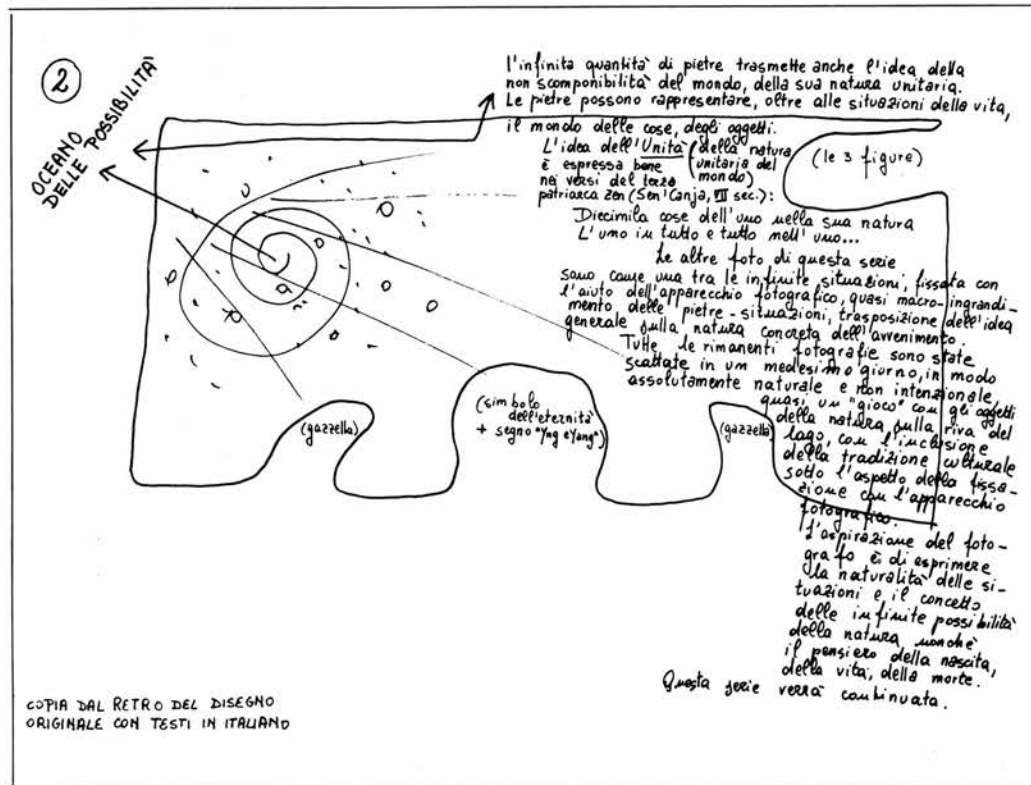 2
OCEANO
DELLE POSSIBILITÀ
l'infinita quantità di pietre trasmette anche l'idea della
non scomponibilità del mondo, della sua natura unitaria.
Le pietre possono rappresentare, oltre alle situazioni della vita,
il mondo delle cose, degli oggetti.
L'idea dell'Unità (della natura
è espressa bene unitaria del
nei versi del terzo mondo)
patriarca zen (Sen'Canja, VII sec.):
Diecimila cose dell'uno nella sua natura
L'uno in tutto e tutto nell'uno...
(le 3 figure)
Le altre foto di questa serie
sono come una tra le infinite situazioni, fissata con
l'aiuto dell'apparecchio fotografico, quasi macro-ingrandi-
mento delle pietre-situazioni, trasposizione dell'idea
generale sulla natura concreta dell'avvenimento.
Tutte le rimanenti fotografie sono state
scattate in un medesimo giorno, in modo
assolutamente naturale e non intenzionale,
quasi un "gioco" con gli oggetti
della natura sulla riva del
lago, con l'inclusione
della tradizione culturale
sotto l'aspetto della fissa-
zione con l'apparecchio
fotografico.
L'aspirazione del foto-
grafo è di esprimere
la naturalità delle si-
tuazioni e il concetto
delle infinite possibilità
della natura nonchè
il pensiero della nascita,
della vita, della morte.
Questa serie verrà continuata.
(gazzella)
(simbolo
dell'eternità
+ segno "Yng e Yang")
(gazzella)
COPIA DAL RETRO DEL DISEGNO
ORIGINALE CON TESTI IN ITALIANO